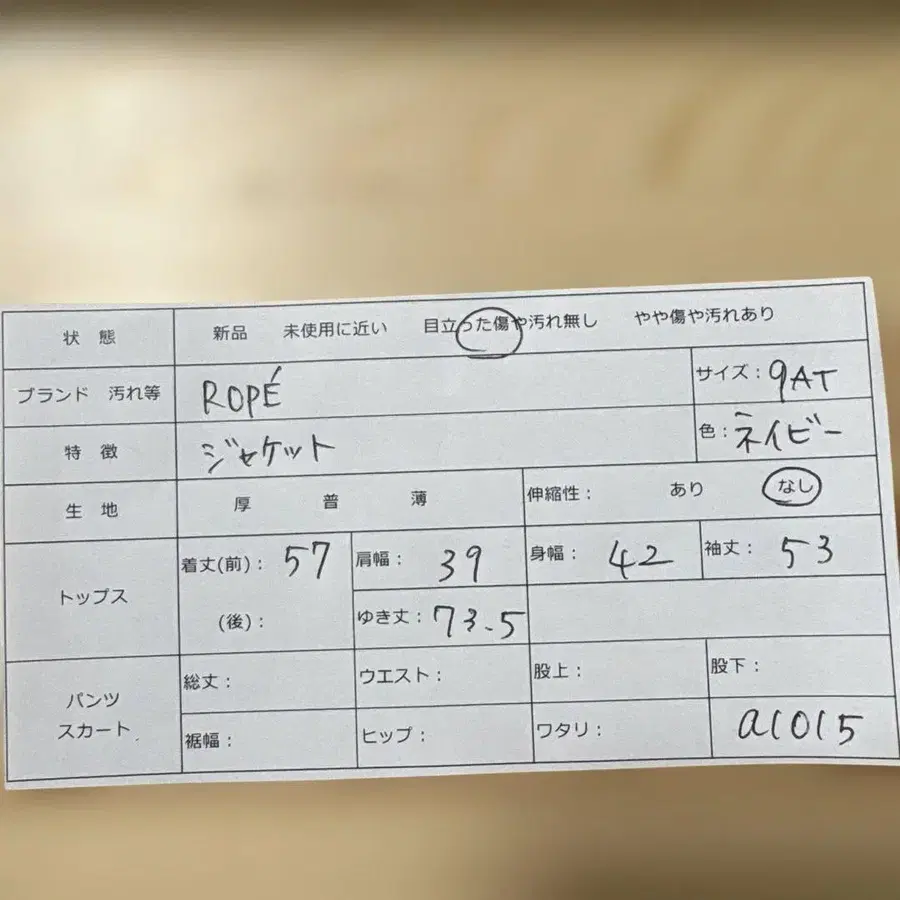 状 態 新品 未使用に近い 目立った傷や汚れ無し やや傷や汚れあり
ブランド 汚れ等 ROPÉ サイズ: 9AT
特 徴 ジャケット 色: ネイビー
生 地 厚 普 薄 伸縮性: あり なし
トップス 着丈(前): 57 肩幅: 39 身幅: 42 袖丈: 53
(後): ゆき丈: 73.5
パンツ 総丈: ウエスト: 股上: 股下:
スカート 裾幅: ヒップ: ワタリ: a1015